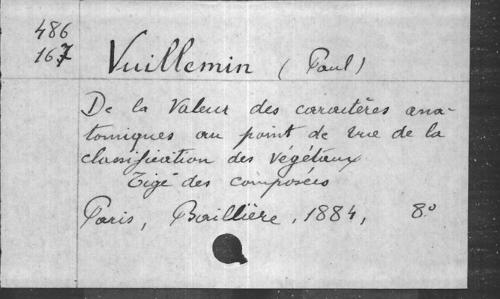 486
167
Vuillemin (Paul)
De la Valeur des caractères ana-
tomiques au point de vue de la
classification des végétaux
Tige des composées
Paris, Baillière, 1884, 8º